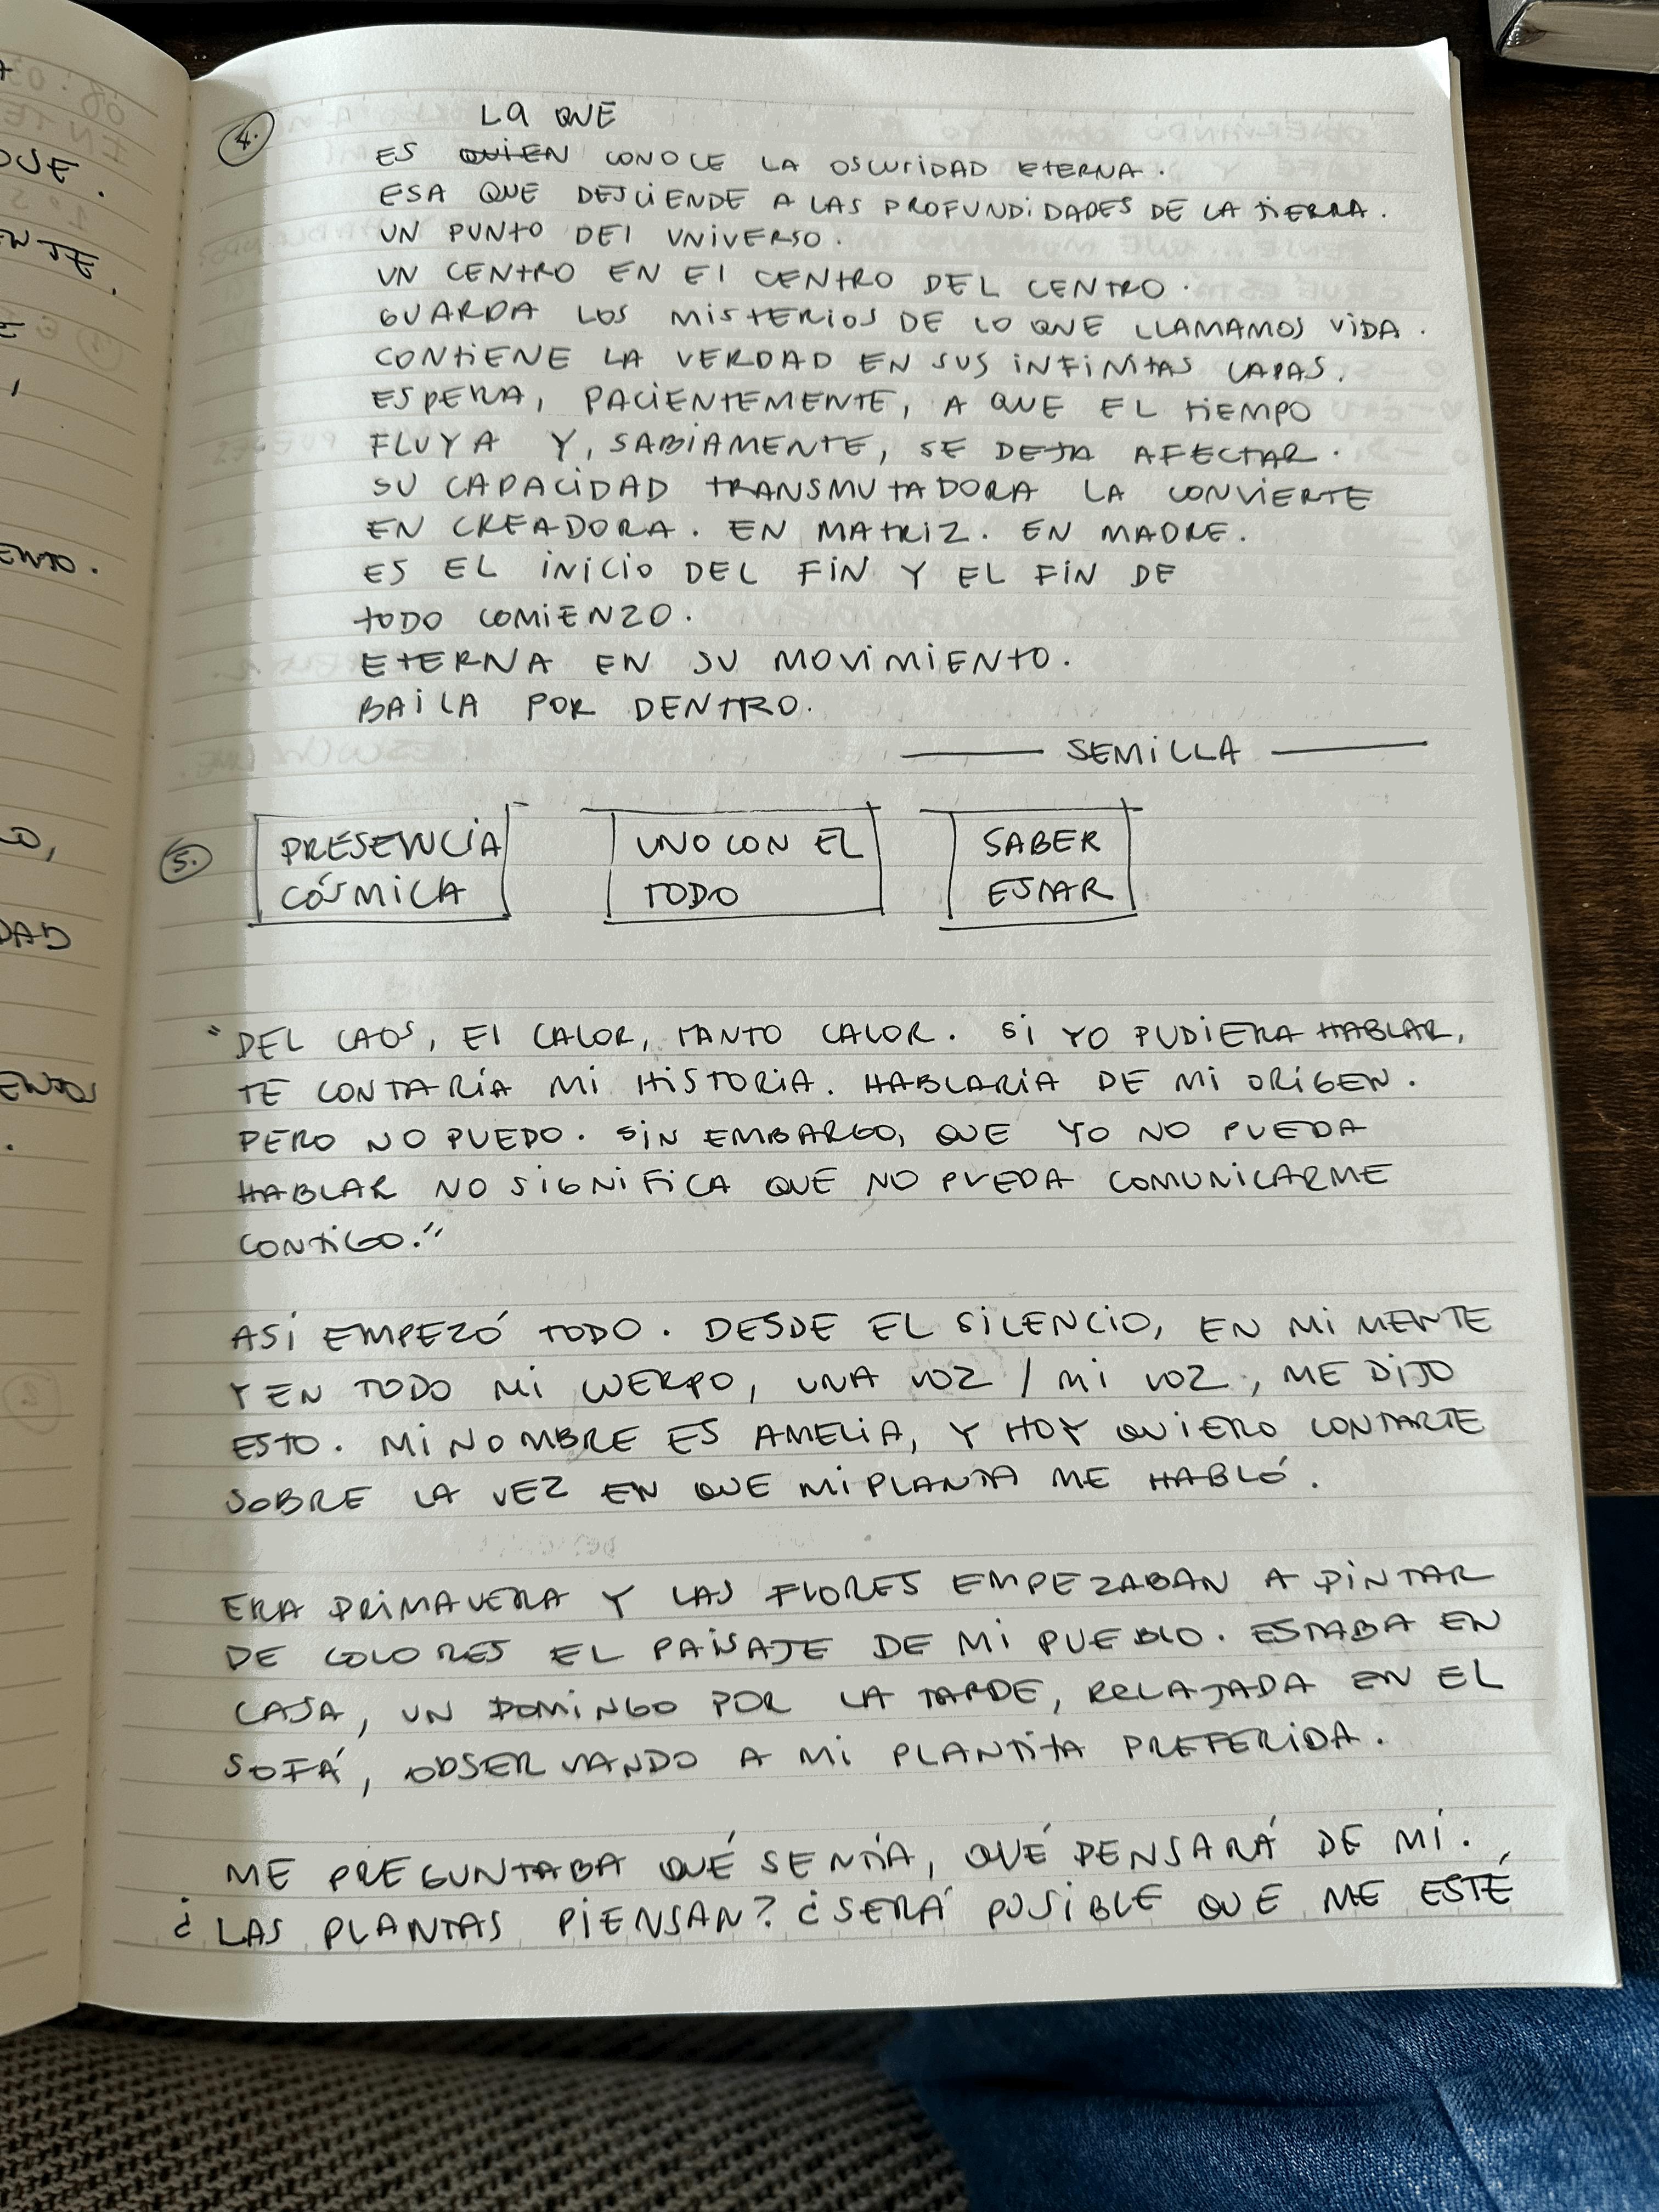 4.
LA QUE
ES QUIEN CONOCE LA OSCURIDAD ETERNA.
ESA QUE DESCIENDE A LAS PROFUNDIDADES DE LA TIERRA.
UN PUNTO DEL UNIVERSO.
UN CENTRO EN El CENTRO DEL CENTRO.
GUARDA LOS MISTERIOS DE LO QUE LLAMAMOS VIDA.
CONTIENE LA VERDAD EN SUS INFINITAS CAPAS.
ESPERA, PACIENTEMENTE, A QUE EL TIEMPO
FLUYA Y, SABIAMENTE, SE DEJA AFECTAR.
SU CAPACIDAD TRANSMUTADORA LA CONVIERTE
EN CREADORA. EN MATRIZ. EN MADRE.
ES EL INICIO DEL FIN Y EL FIN DE
TODO COMIENZO.
ETERNA EN SU MOVIMIENTO.
BAILA POR DENTRO.
SEMILLA
5.
PRESENCIA
CÓSMICA
UNO CON EL
TODO
SABER
ESTAR
"DEL CAOS, El CALOR, TANTO CALOR. SI YO PUDIERA HABLAR,
TE CONTARÍA MI HISTORIA. HABLARÍA DE MI ORÍGEN.
PERO NO PUEDO. SIN EMBARGO, QUE YO NO PUEDA
HABLAR NO SIGNIFICA QUE NO PUEDA COMUNICARME
CONTIGO."
ASÍ EMPEZÓ TODO. DESDE EL SILENCIO, EN MI MENTE
Y EN TODO MI CUERPO, UNA VOZ / MI VOZ, ME DIJO
ESTO. MI NOMBRE ES AMELIA, Y HOY QUIERO CONTARTE
SOBRE LA VEZ EN QUE MI PLANTA ME HABLÓ.
ERA PRIMAVERA Y LAS FLORES EMPEZABAN A PINTAR
DE COLORES EL PAISAJE DE MI PUEBLO. ESTABA EN
CASA, UN DOMINGO POR LA TARDE, RELAJADA EN EL
SOFÁ, OBSERVANDO A MI PLANTITA PREFERIDA.
ME PREGUNTABA QUÉ SENTÍA, QUÉ PENSARÁ DE MÍ.
¿LAS PLANTAS PIENSAN? ¿SERÁ POSIBLE QUE ME ESTÉ